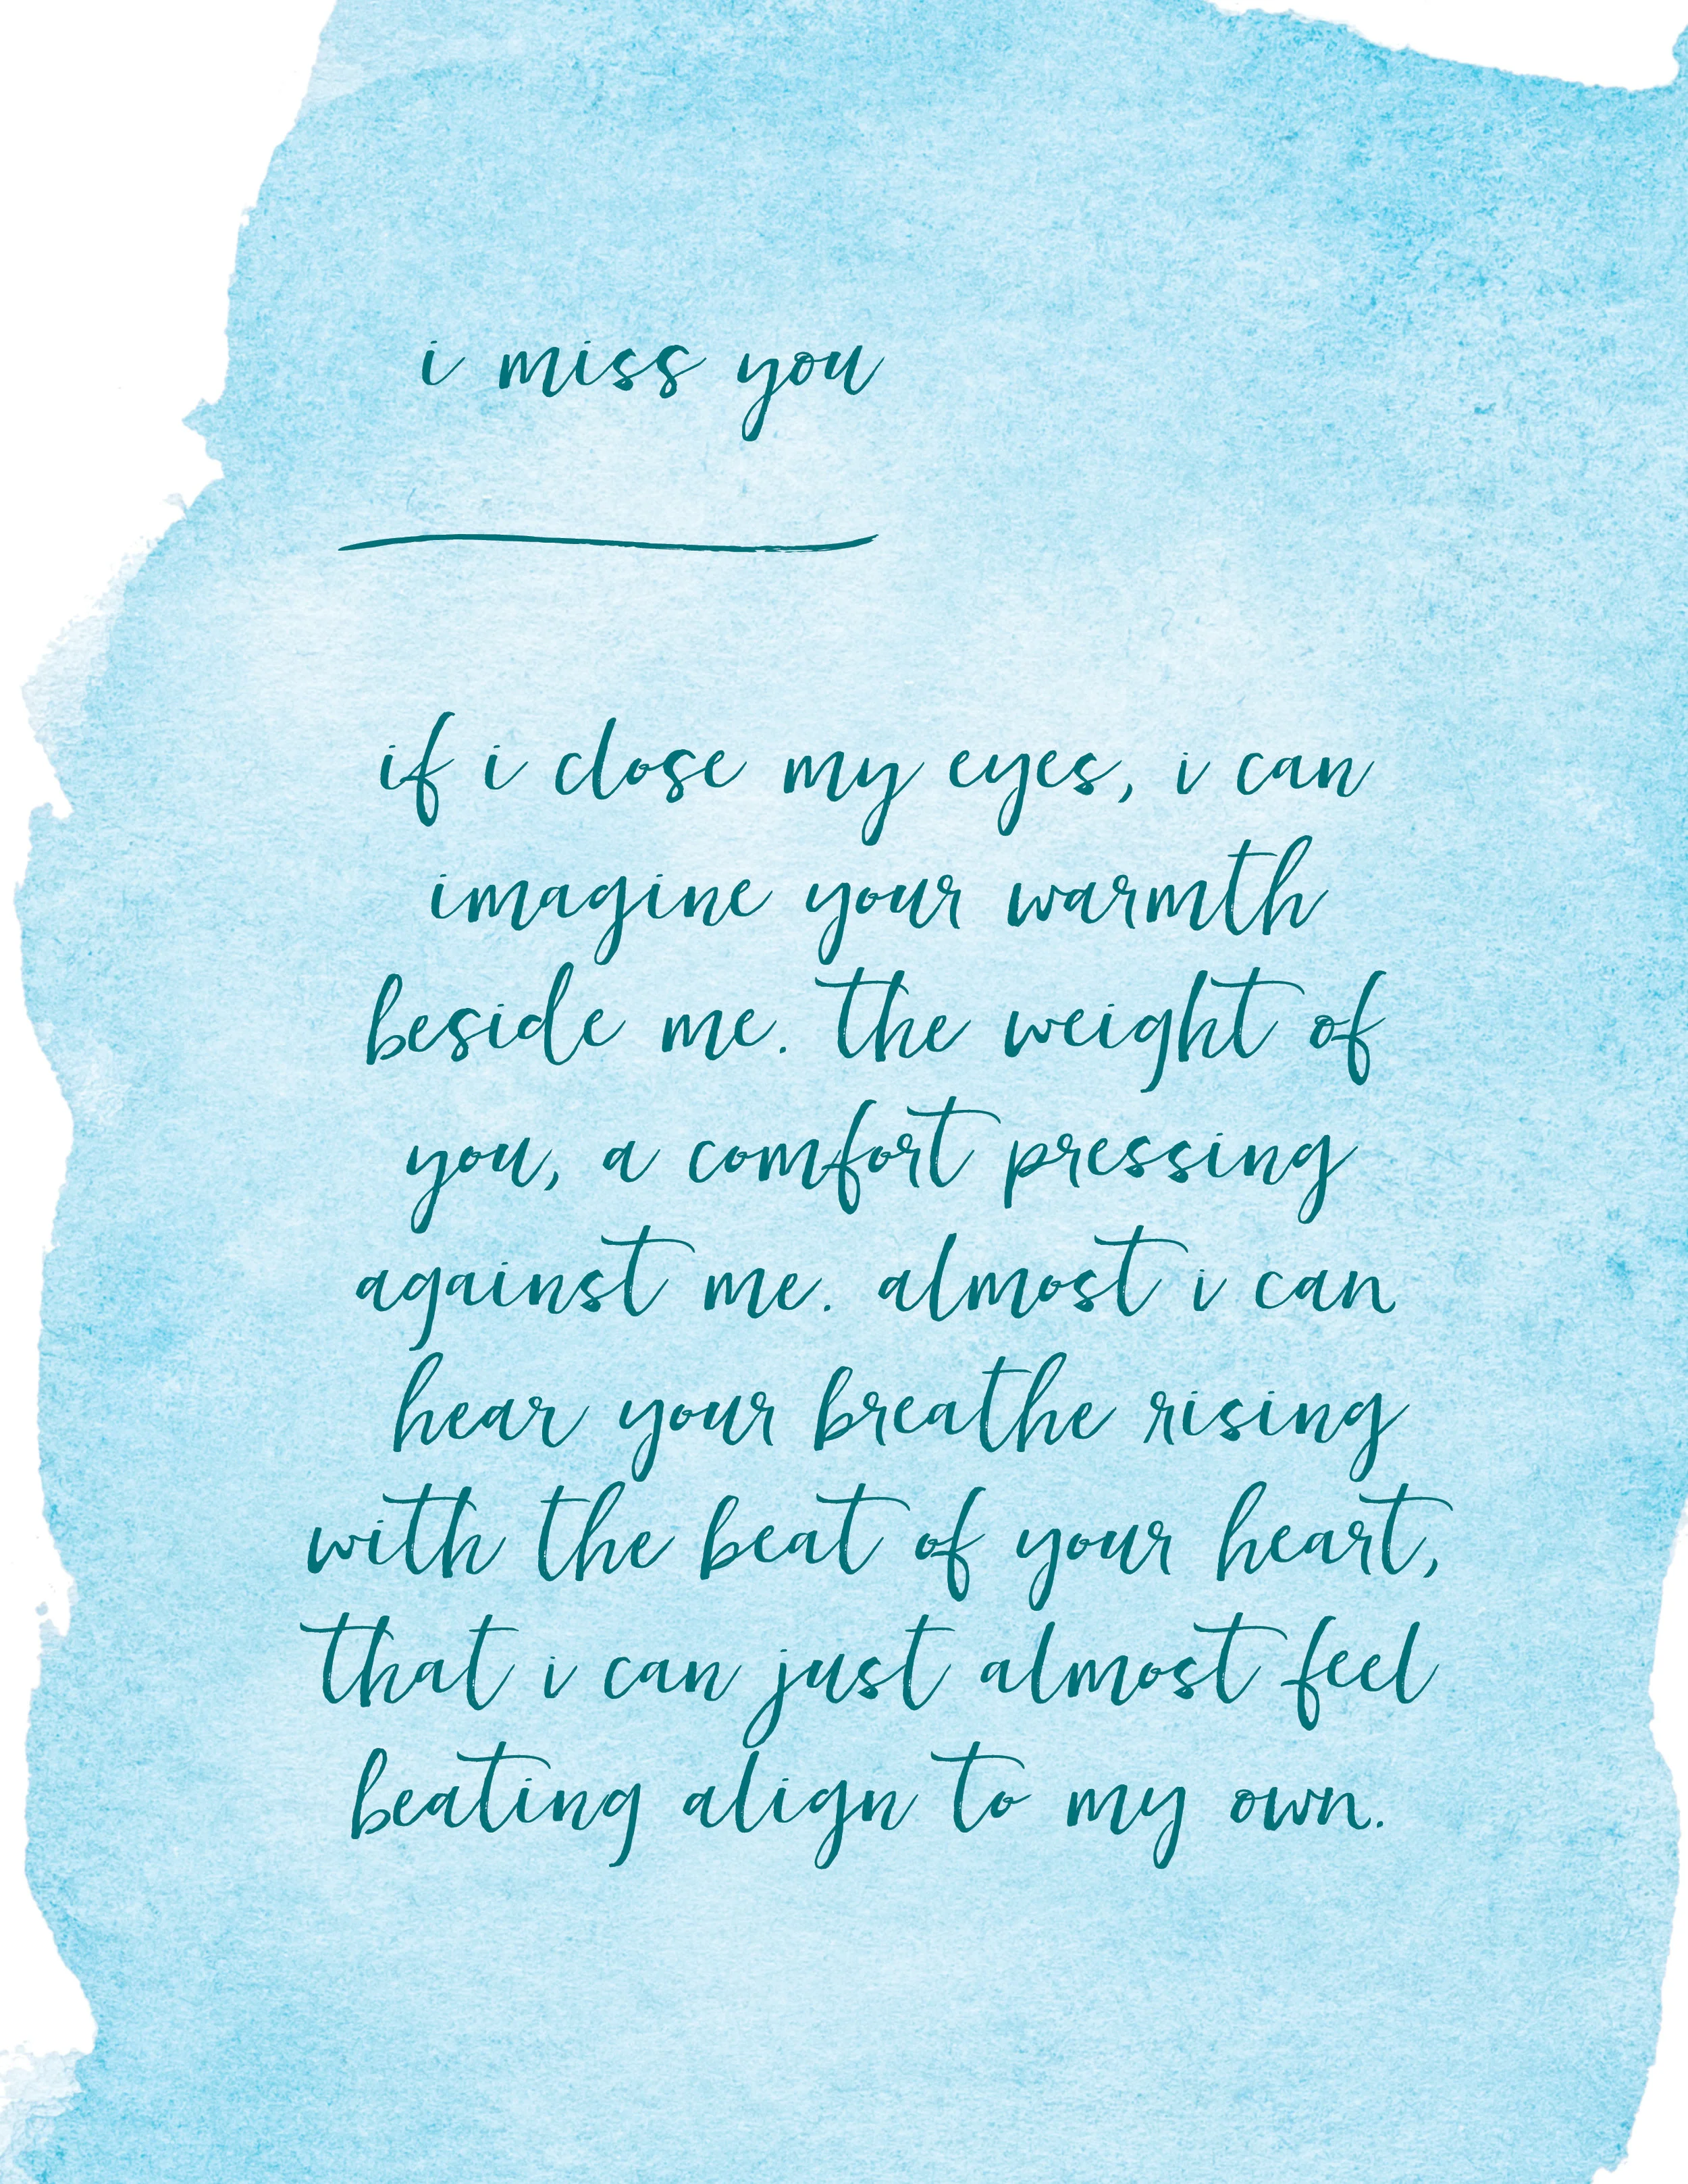 i miss you
if i close my eyes, i can
imagine your warmth
beside me. the weight of
you, a comfort pressing
against me. almost i can
hear your breathe rising
with the beat of your heart,
that i can just almost feel
beating align to my own.